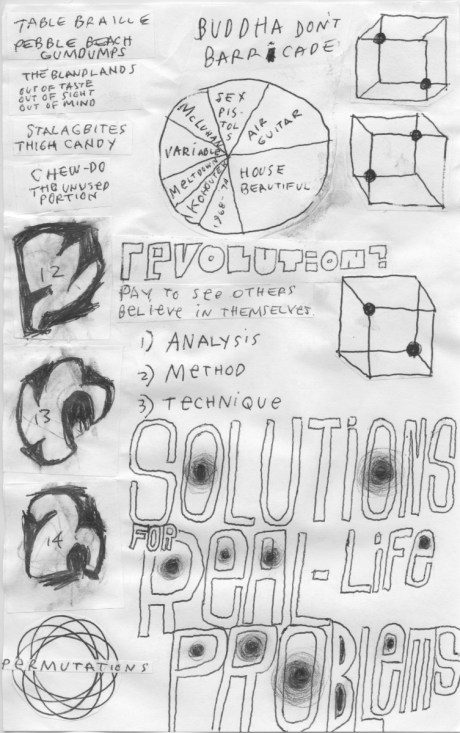 TABLE BRAILLE
PEBBLE BEACH
GUMDUMPS
THE BLANDLANDS
OUT OF TASTE
OUT OF SIGHT
OUT OF MIND
STALAGBITES
THIGH CANDY
CHEW-DO
THE UNUSED
PORTION
BUDDHA DON'T
BARRiCADE
SEX
PIS-
TOLS
AIR
GUITAR
HOUSE
BEAUTIFUL
1968-72
KOHOUTEK
MELTDOWN
VARIABLE
McLUHAN
12
13
14
REVOLUTiON?
PAY TO SEE OTHERS
BELIEVE IN THEMSELVES
1) ANALYSIS
2) METHOD
3) TECHNIQUE
SOLUTiONS
FOR
ReAL-LiFe
PROBLeMS
PERMUTATIONS